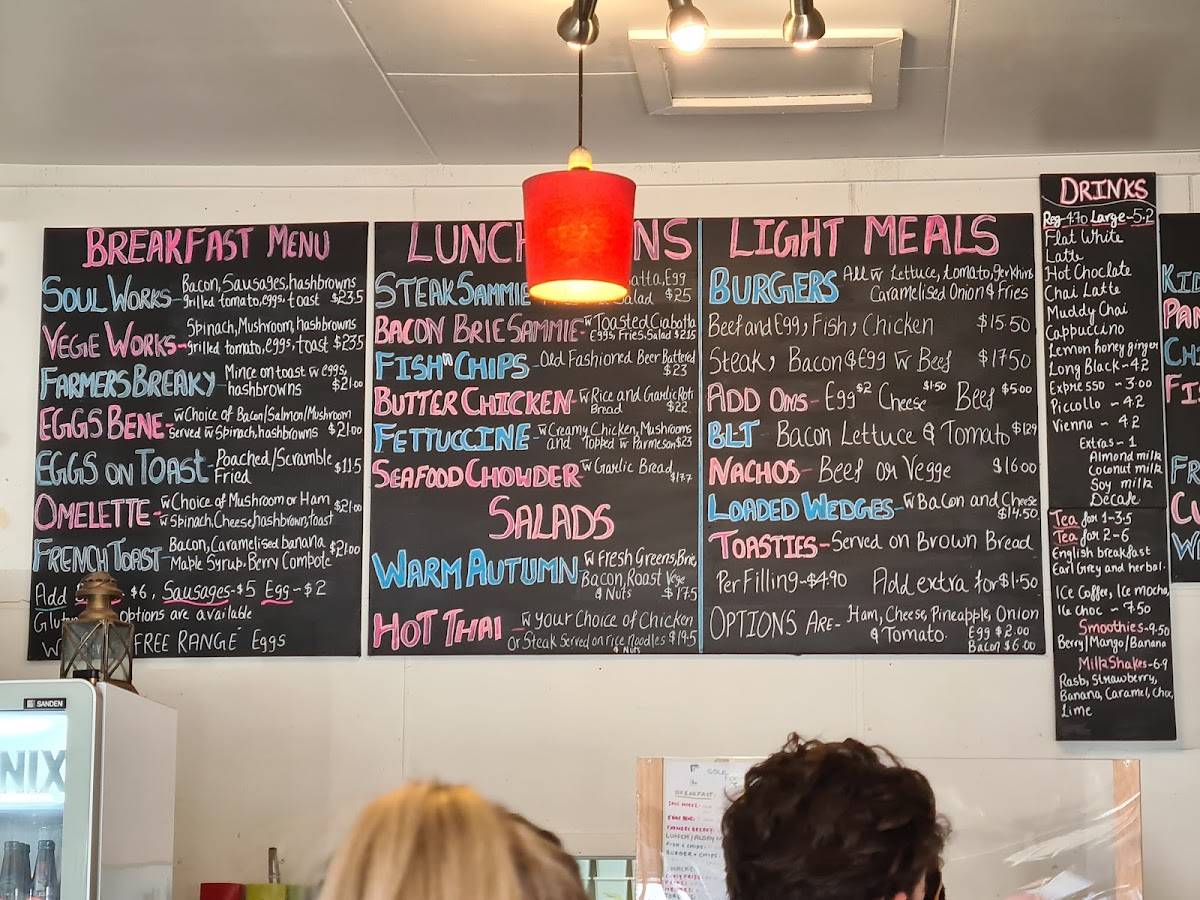 BREAKFAST MENU
SOUL WORKS- Bacon, Sausages, hashbrowns
grilled tomato, eggs, toast $23.5
VEGIE WORKS- Spinach, Mushroom, hashbrowns
grilled tomato, eggs, toast $23.5
FARMERS BREAKY- Mince on toast w eggs,
hashbrowns $21.00
EGGS BENE- w Choice of Bacon/Salmon/Mushroom
served w Spinach, hashbrowns $21.00
EGGS ON TOAST- Poached/Scramble
Fried $11.5
OMELETTE- w Choice of Mushroom or Ham
w Spinach, Cheese, hashbrown, toast $21.00
FRENCH TOAST- Bacon, Caramelised banana
Maple Syrup, Berry Compote $21.00
Add $6, Sausages-$5 Egg-$2
options are available
FREE RANGE Eggs
LUNCH NS
STEAK SAMMIE Egg
alad $25
BACON BRIE SAMMIE- w Toasted Ciabatta
Eggs, Fries, Salad $21.5
FISH n CHIPS- Old Fashioned Beer Battered
$23
BUTTER CHICKEN- w Rice and Garlic Roti
Bread $22
FETTUCCINE- w Creamy Chicken, Mushrooms
and Topped w Parmesan $23
SEAFOOD CHOWDER- w Garlic Bread
$17.7
SALADS
WARM AUTUMN w Fresh Greens, Brie,
Bacon, Roast Vege
& Nuts $17.5
HOT THAI - w your Choice of Chicken
or Steak Served on rice noodles $19.5
& Nuts
LIGHT MEALS
BURGERS All w Lettuce, tomato, gerkhins
Caramelised Onion & Fries
Beef and Egg, Fish, Chicken $15.50
Steak, Bacon & Egg w Beef $17.50
ADD ONS- Egg $2 Cheese $1.50 Beef $5.00
BLT Bacon Lettuce & Tomato $12.9
NACHOS- Beef or Vegge $16.00
LOADED WEDGES- w Bacon and Cheese
$14.50
TOASTIES- Served on Brown Bread
Per Filling-$4.90 Add extra for $1.50
OPTIONS ARE- Ham, Cheese, Pineapple, Onion
& Tomato. Egg $2.00
Bacon $6.00
DRINKS
Reg-4.70 Large-5.2
Flat White
Latte
Hot Choclate
Chai Latte
Muddy Chai
Cappuccino
Lemon honey ginger
Long Black-4.2
Expresso - 3.00
Piccollo - 4.2
Vienna - 4.2
Extras - 1
Almond milk
Coconut milk
Soy milk
Decafe
Tea for 1-3.5
Tea for 2-6
English breakfast
Earl Grey and herbal.
Ice Coffee, Ice mocha,
Ice choc - 7.50
Smoothies-9.50
Berry/Mango/Banana
MilkShakes-6.9
Rasb, Strawberry,
Banana, Caramel, Choc,
Lime
KID
PAN
CH
FI
FR
CU
W
SANDEN
NIX
SOUL
BREAKFAST:
SOUL WORKS
EGGS BENE
FARMERS BREAKY
LUNCH/ALLDAY
FISH & CHIPS
BURGER + CHIPS